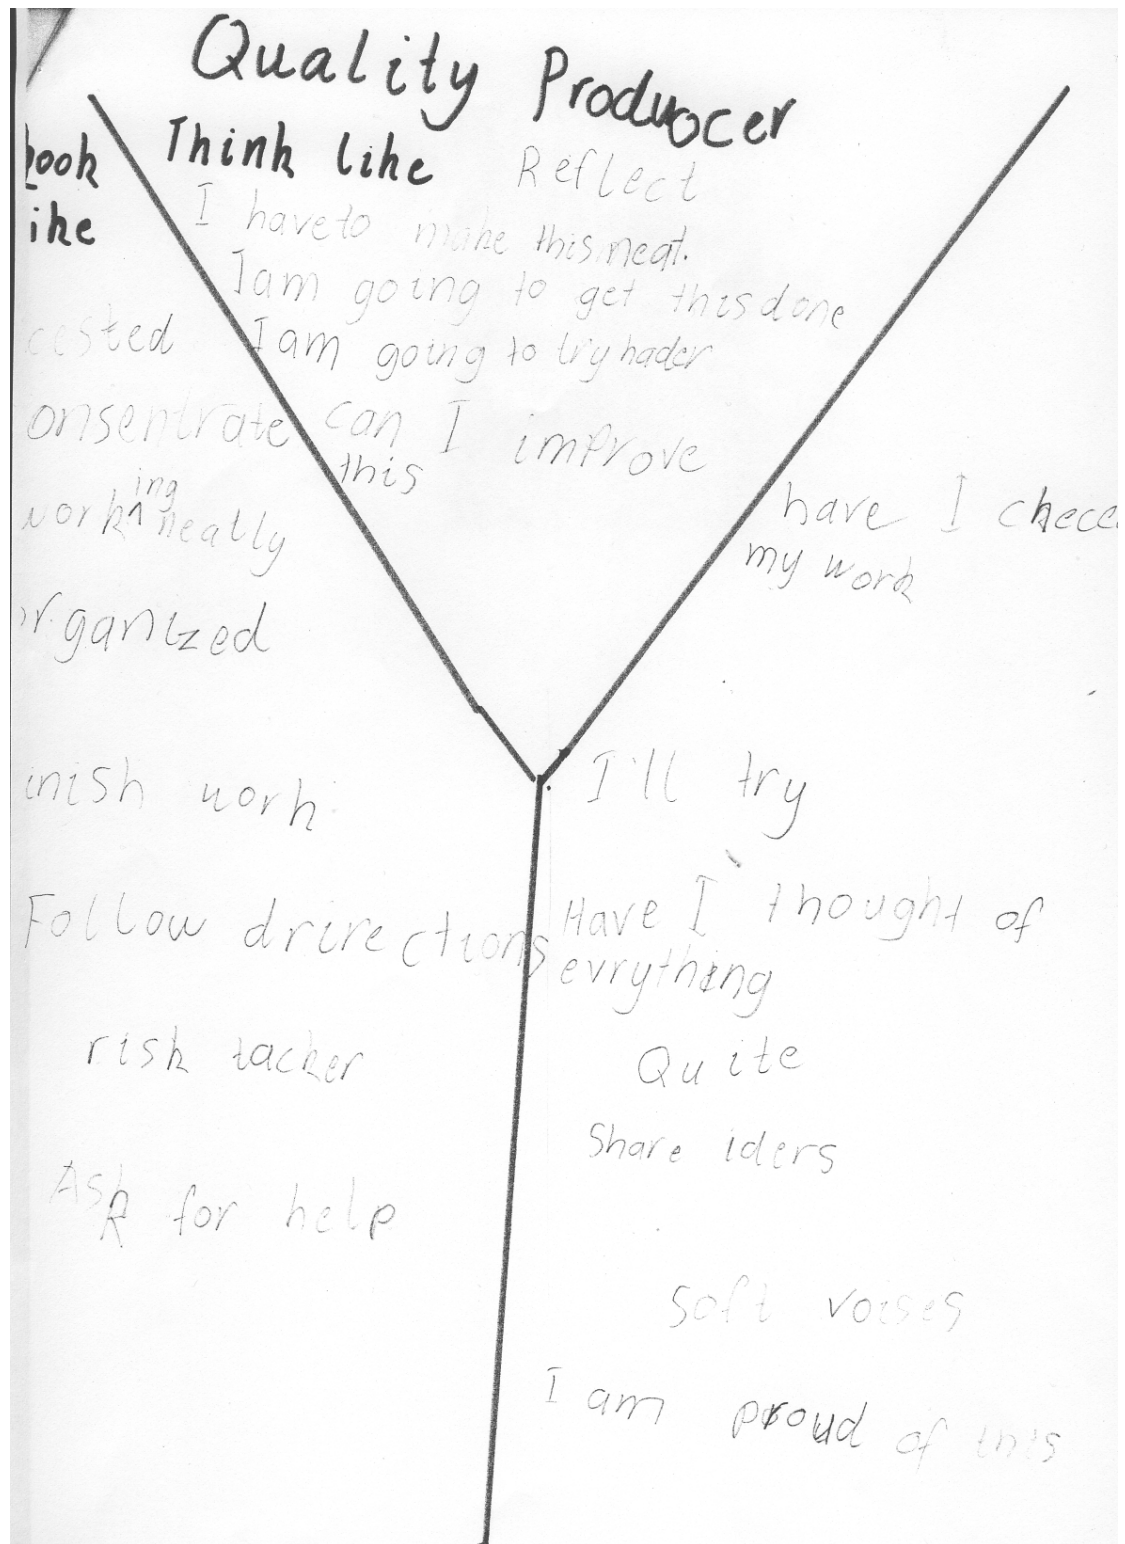 Quality Producer
Think like
Reflect
I have to make this neat.
I am going to get this done
I am going to try hader
can I improve
this
ook
ike
cested
onsentrate
working neatly
organized
inish work
Follow drirections
risk tacker
Ask for help
have I checc
my work
I'll try
Have I thought of
evrything
Quite
Share iders
Soft voises
I am proud of this